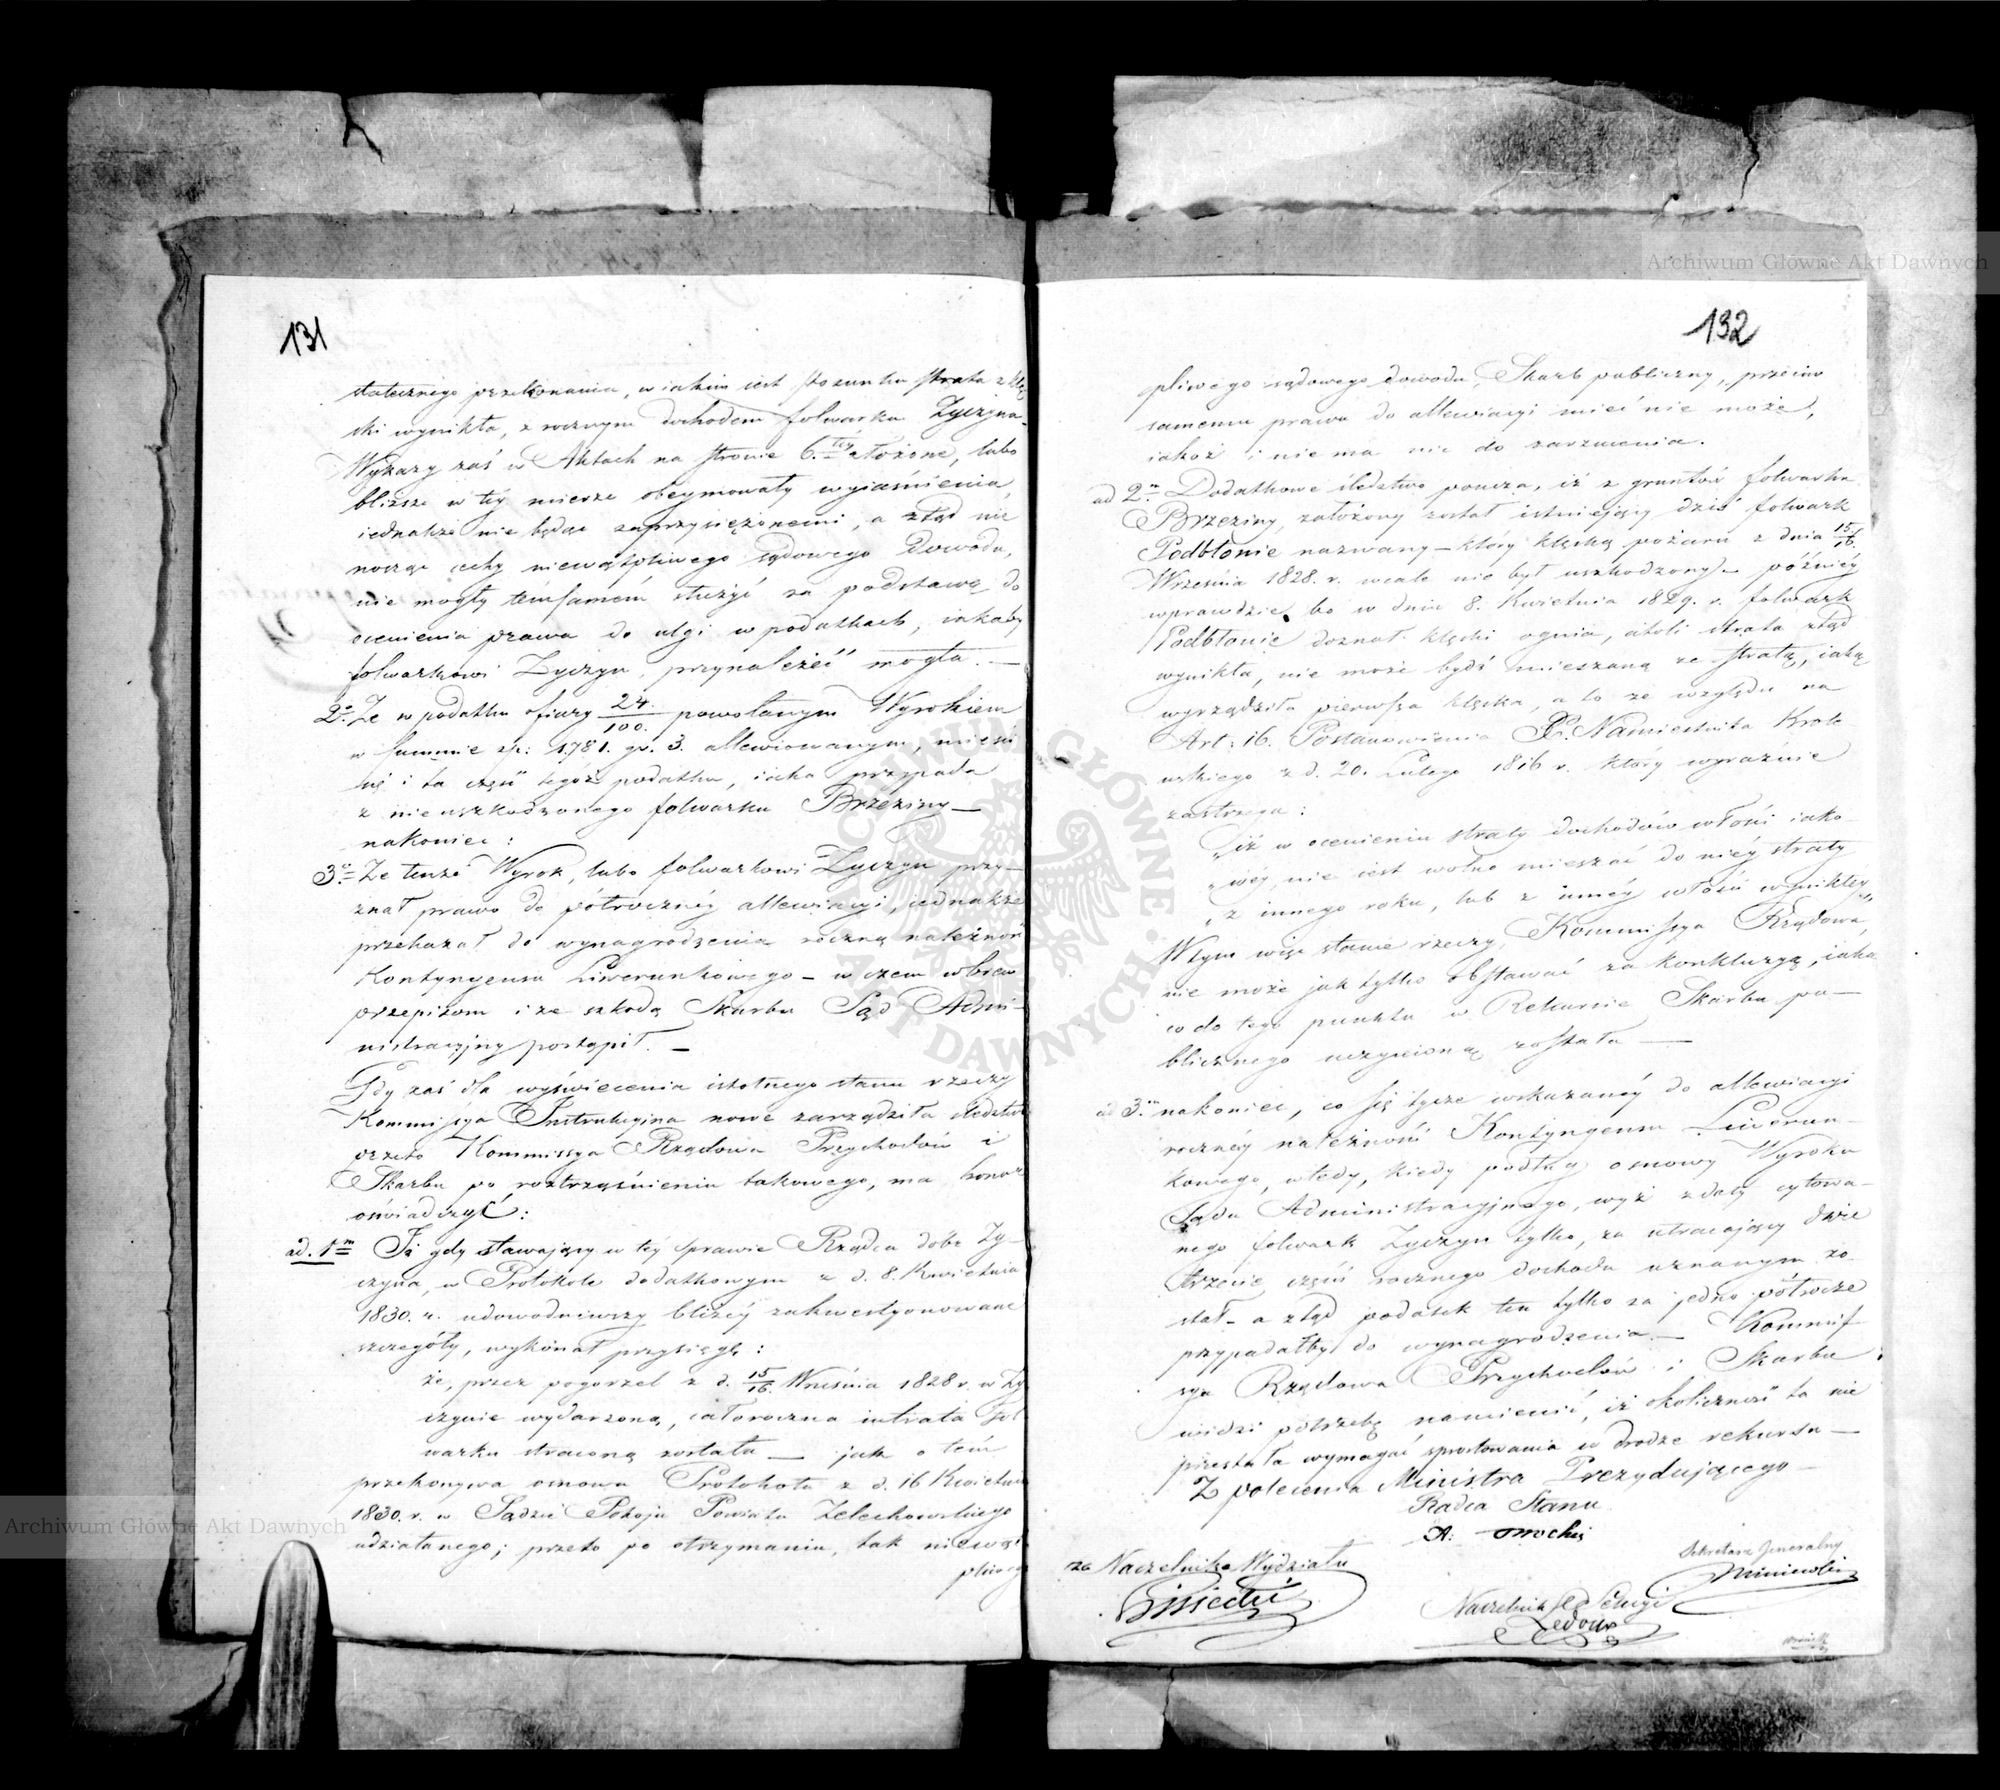 131
statecznego przekonania, w iakim iest stosunku strata z klę-
ski wynikła, z rocznym dochodem folwarku Życzyna.
Wykazy zaś w Aktach na stronie 6.tey złożone, lubo
bliższe w téy mierze obeymowały wyiaśnienia,
iednakże nie będąc zaprzysiężonemi, a ztąd nie
nosząc cechy niewątpliwego sądowego dowodu,
nie mogły témsamém służyć za podstawę do
ocenienia prawa do ulgi w podatkach, iakaby
folwarkowi Życzyn, przynależéć mogła. —
2o. Że w podatku ofiary 24/100. powołanym Wyrokiem
w summie zp: 1781. gr. 3. allewiowanym, mieści
się i ta część tegoż podatku, iaka przypada
z nieuszkodzonego folwarku Brzeziny —
nakoniec:
3o. Że tenże Wyrok, lubo folwarkowi Życzyn przy-
znał prawo do półroczney allewiacyi, iednakże
przekazał do wynagrodzenia roczną należność
Kontyngensu Liwerunkowego — w czem wbrew
przepisom i ze szkodą Skarbu Sąd Admi-
nistracyjny postąpił. —
Gdy zaś dla wyświecenia istotnego stanu rzeczy
Kommissya Instrukcyjna nowe zarządziła śledztwo
przeto Kommissya Rządowa Przychodów i
Skarbu po roztrząśnieniu takowego, ma honor
oświadczyć:
ad. 1m Iż gdy stawający w téy sprawie Rządca dóbr Ży-
czyna, w Protokole dodatkowym z d. 8. Kwietnia
1830. r. udowodniwszy bliżéy zakwestyonowane
szczegóły, wykonał przysięgę:
że, przez pogorzel z d. 15/16. Wrześnią 1828 r. w Ży
czynie wydarzoną, całoroczna intrata fol
warku straconą została — jak o tém
przekonywa osnowa Protokołu z d. 16 Kwietnia
1830. r. w Sądzie Pokoju Powiatu Żelechowskiego
udziałanego; przeto po otrzymaniu, tak niewąt
pliweg
132
pliwego sądowego dowodu, Skarb publiczny, przeciw
samemu prawu do allewiacyi mieć nie może,
iakoż i nie ma nic do zarzucenia.
ad 2m. Dodatkowe śledztwo poucza, iż z gruntów folwarku
Brzeziny, założony został istniejący dziś folwark
Podbłonie nazwany — który klęską pożaru z dnia 15/16.
Września 1828. r. wcale nie był uszkodzony — późniéy
wprawdzie, bo w dniu 8. Kwietnia 1829. r. folwark
Podbłonie doznał klęski ognia, atoli strata ztąd
wynikła, nie może bydź mieszaną ze stratą, iaką
wyrządziła pierwsza klęska, a to ze względu na
Art: 16. Postanowienia Namiestnika Krole-
wskiego z d. 20. Lutego 1816 r. który wyraźnie
zastrzega:
„iż w ocenieniu straty dochodów włości iako-
„wéy, nie iest wolno mieszać do niéy straty
„z innego roku, lub z innéy włości wynikłéy"
W tym więc stanie rzeczy, Kommissya Rządowa,
nie może jak tylko obstawać za konkluzyą, iaka
co do tego punktu w Rekursie Skarbu pu-
blicznego uczynioną została —
ad 3m. nakoniec, co się tycze wskazanéy do allewiacyi
rocznéy należności Kontyngensu Liwerun-
kowego, wtedy, kiedy podług osnowy Wyroku
Sądu Administracyjnego, wyż z daty cytowa-
nego folwark Życzyn tylko, za utracający dwie
trzecie części rocznego dochodu uznanym zo-
stał — a ztąd podatek ten tylko za jedno półrocze
przypadałby do wynagrodzenia — Kommis-
sya Rządowa Przychodów i Skarbu
widzi potrzebę namienić, iż okoliczność ta nie
przestała wymagać sprostowania w drodze rekursu —
Z polecenia Ministra Prezydującego —
Radca Stanu
za Naczelnika Wydziału
Sekretarz Jeneralny
Naczelnik
Archiwum Główne Akt Dawnych
Archiwum Główne Akt Dawnych
ARCHIWUM GŁÓWNE AKT DAWNYCH